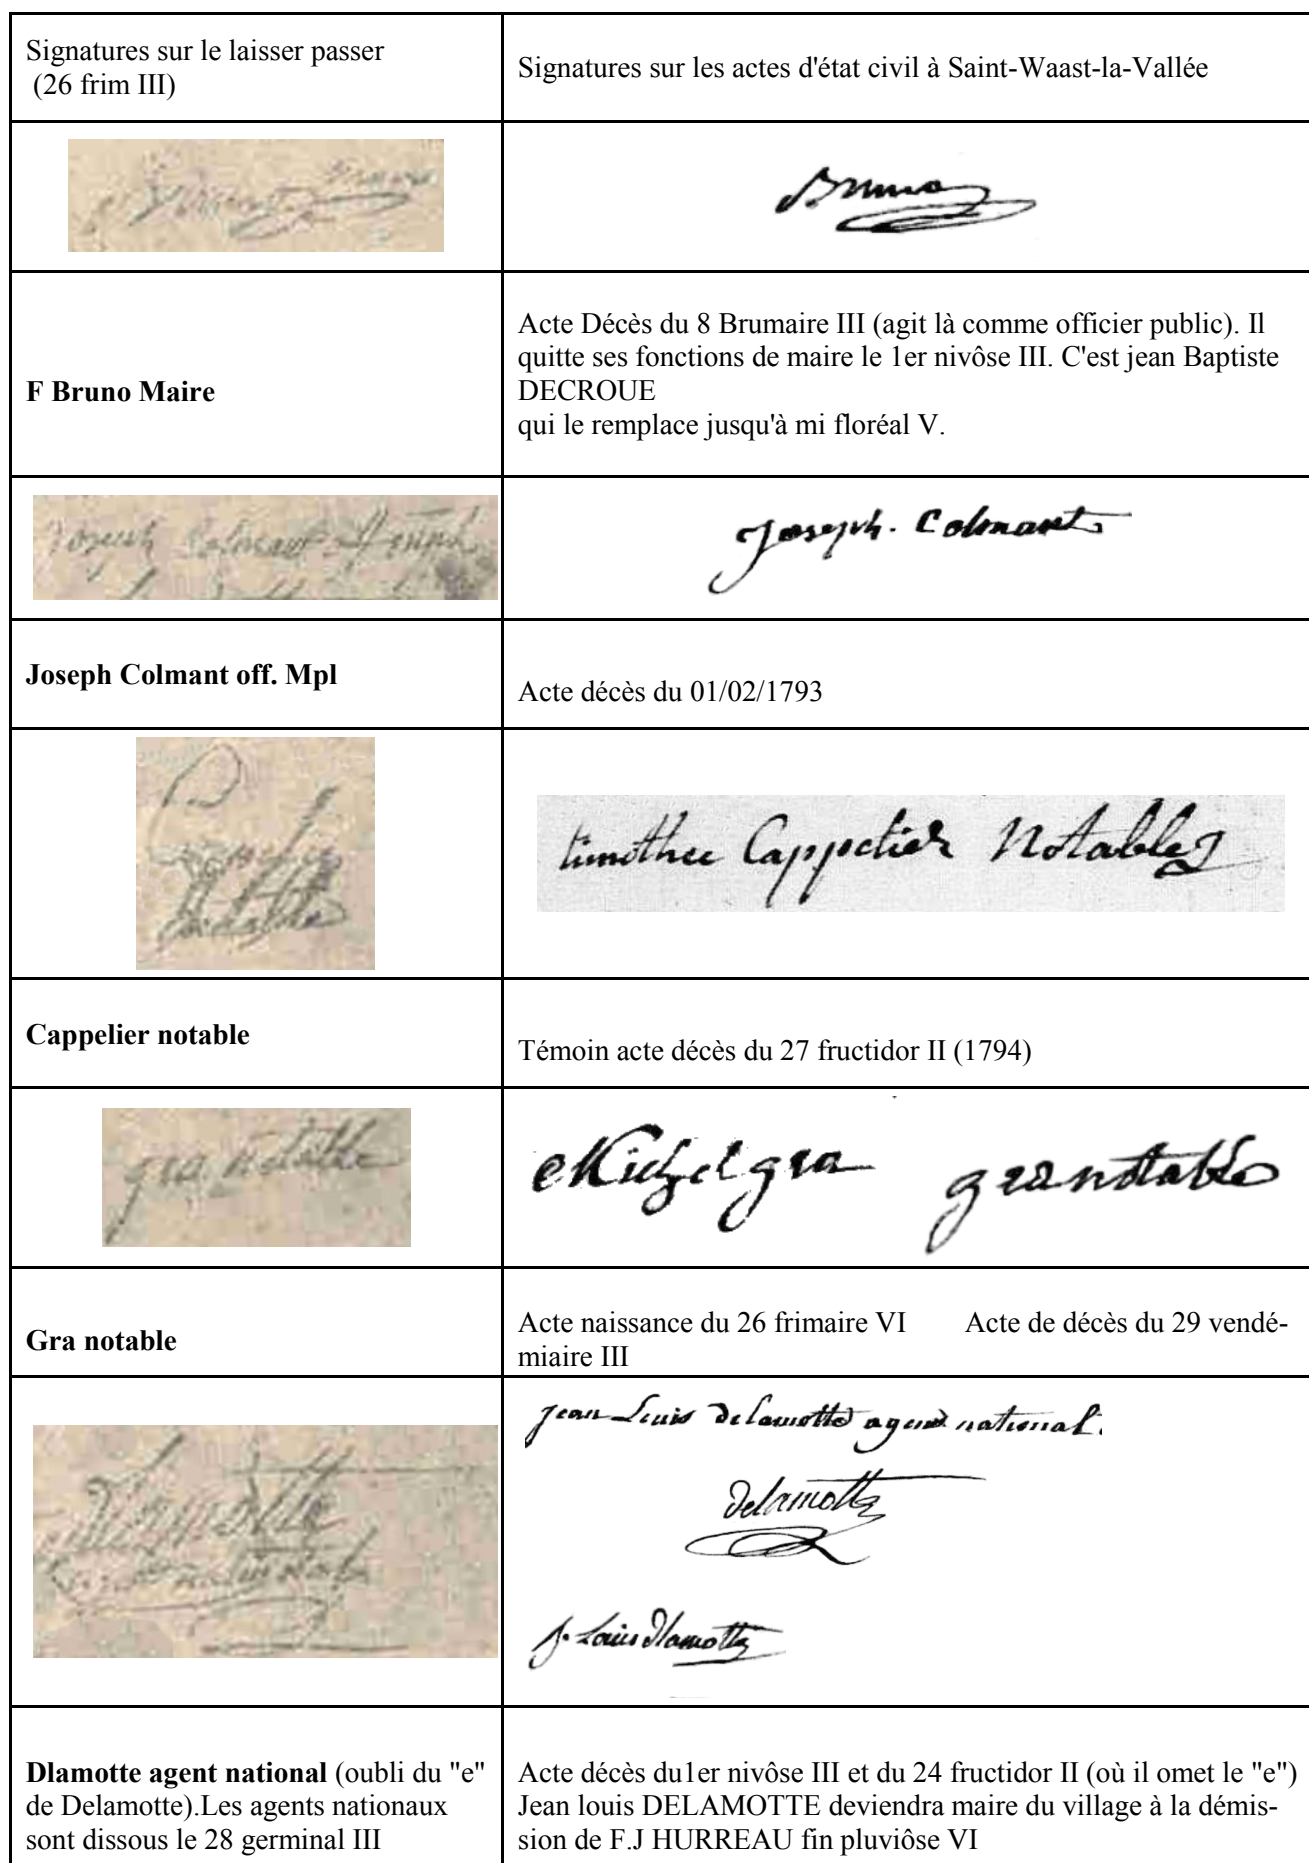 Signatures sur le laisser passer
(26 frim III)
Signatures sur les actes d'état civil à Saint-Waast-la-Vallée
Bruno
F Bruno Maire
Acte Décès du 8 Brumaire III (agit là comme officier public). Il
quitte ses fonctions de maire le 1er nivôse III. C'est jean Baptiste
DECROUE
qui le remplace jusqu'à mi floréal V.
Joseph Colmant
Joseph. Colmant
Joseph Colmant off. Mpl
Acte décès du 01/02/1793
notable
timothee Cappelier Notable
Cappelier notable
Témoin acte décès du 27 fructidor II (1794)
gra notable
Michel gra gra notable
Gra notable
Acte naissance du 26 frimaire VI Acte de décès du 29 vendé-
miaire III
Dlamotte
jean Louis delamotte agent national.
Delamotte
j. Louis Dlamotte
Dlamotte agent national (oubli du "e"
de Delamotte).Les agents nationaux
sont dissous le 28 germinal III
Acte décès du1er nivôse III et du 24 fructidor II (où il omet le "e")
Jean louis DELAMOTTE deviendra maire du village à la démis-
sion de F.J HURREAU fin pluviôse VI